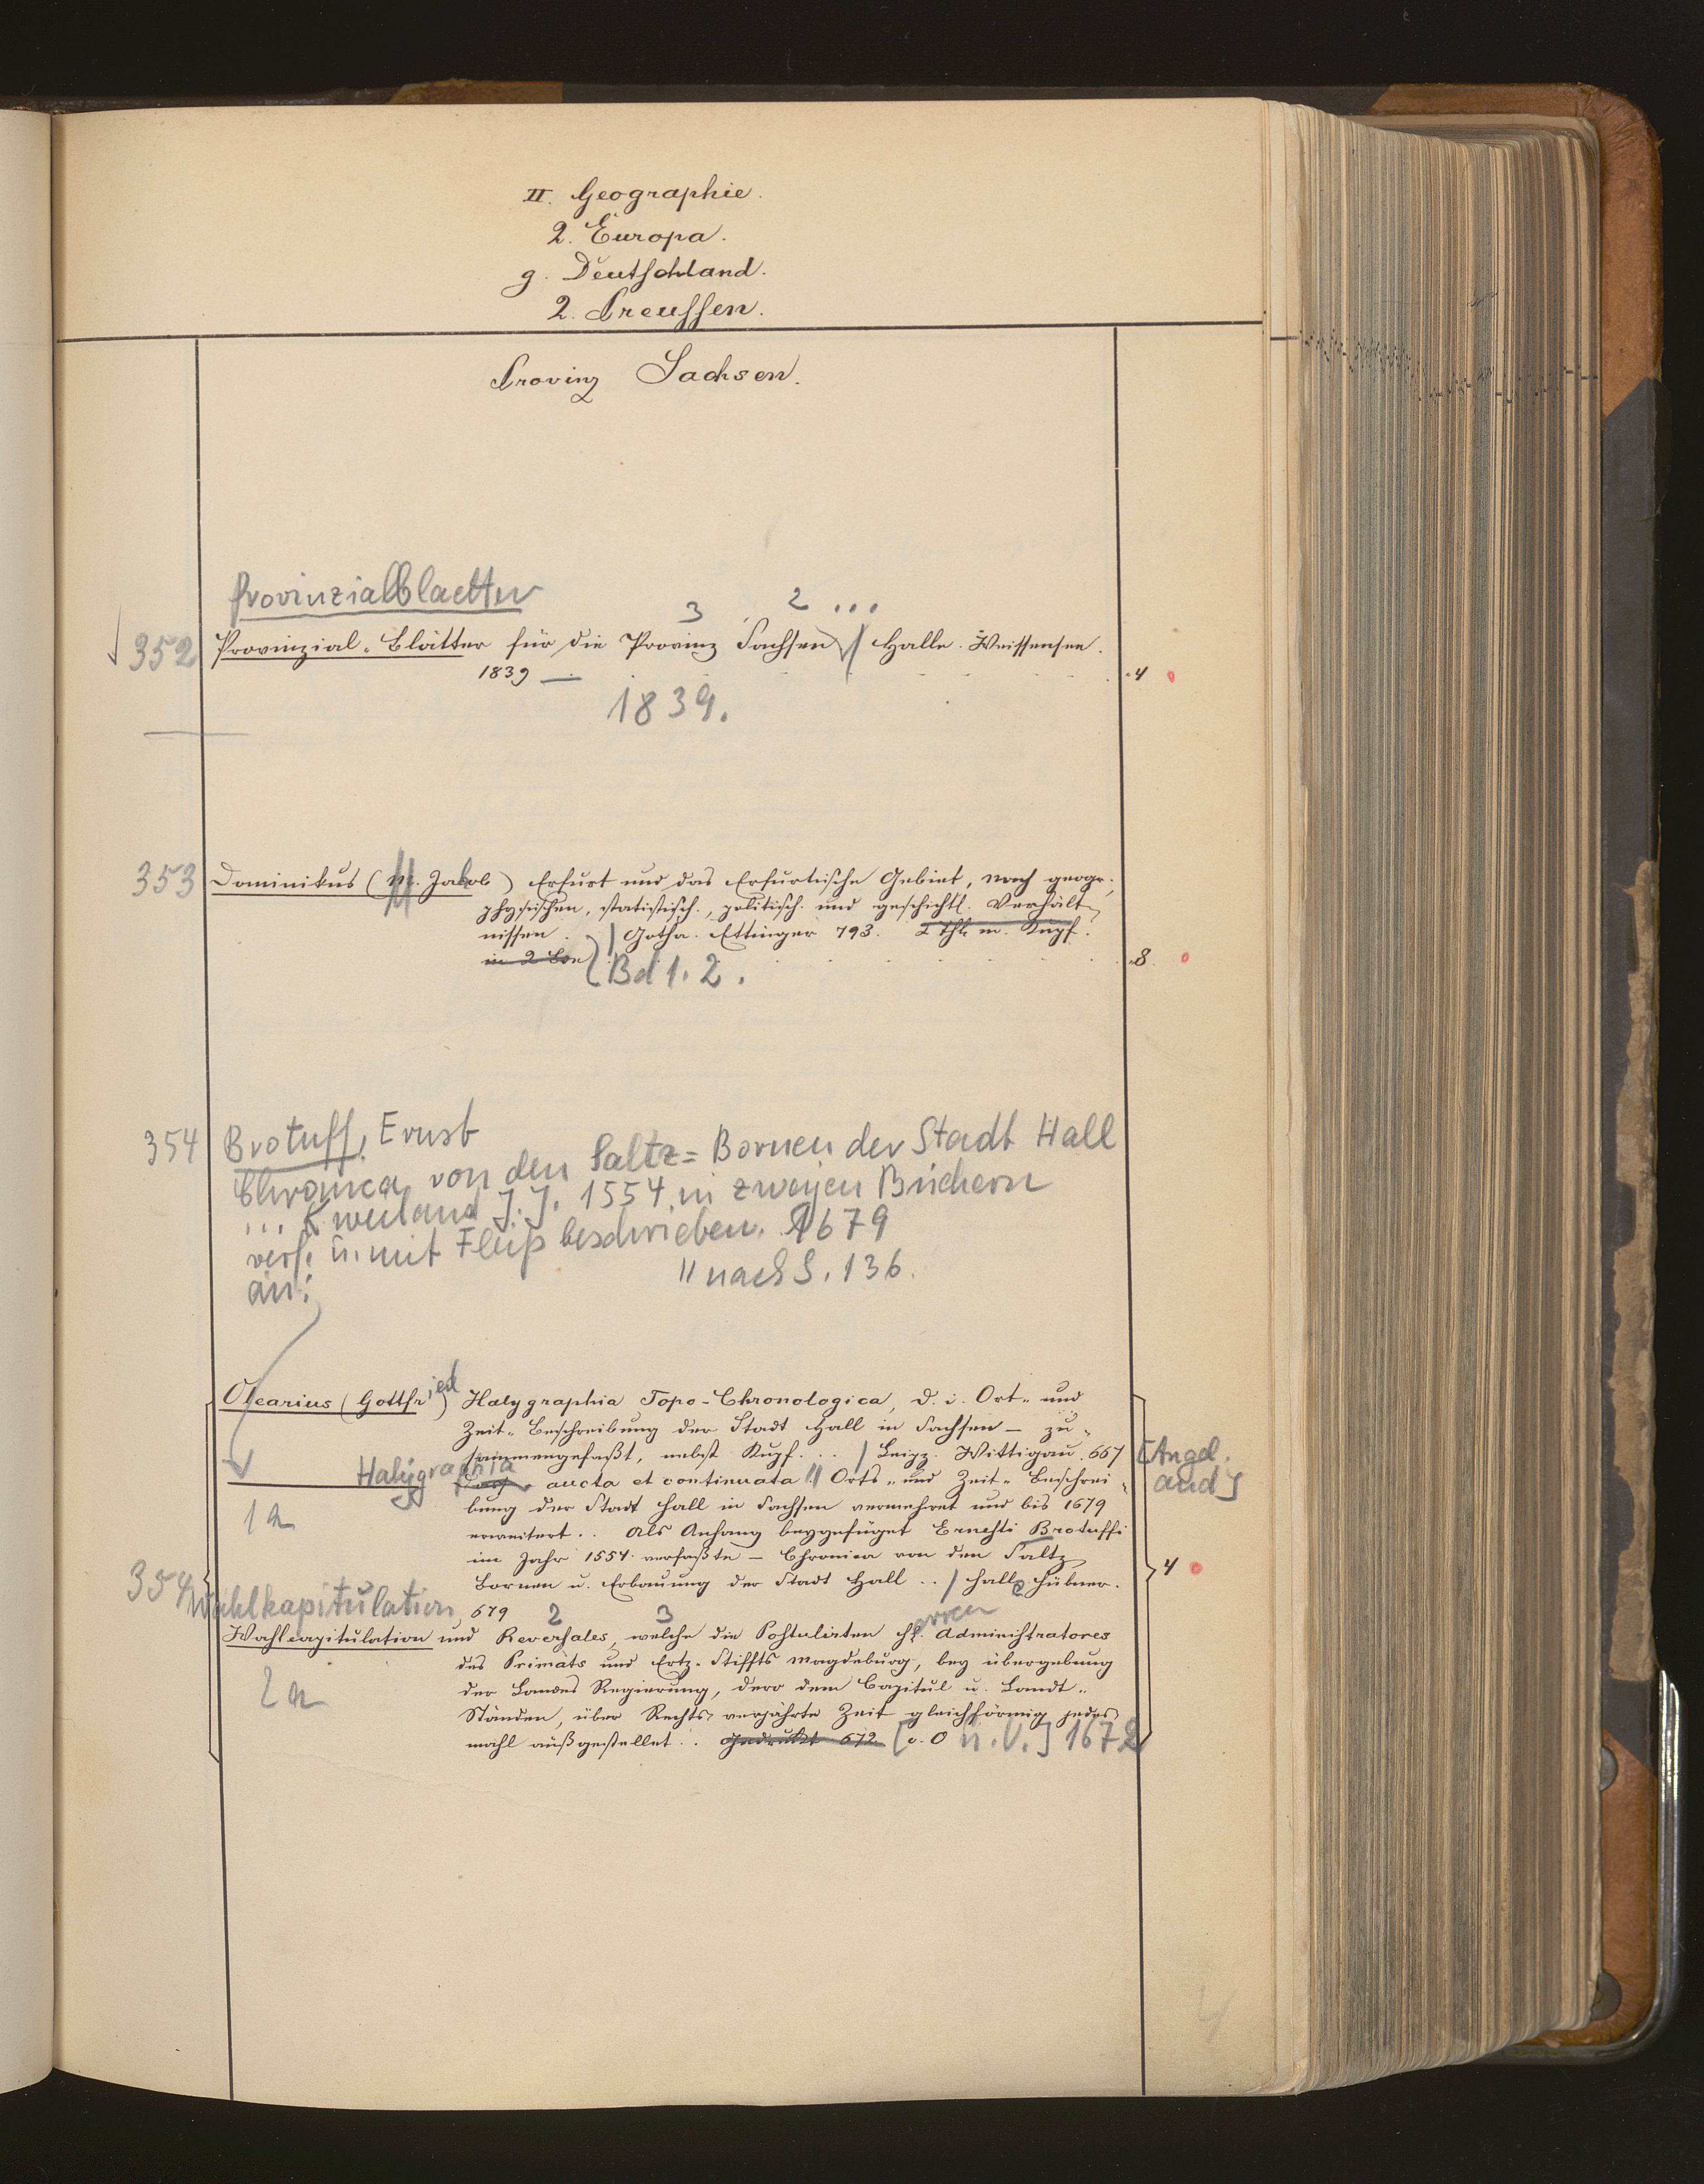 II. Geographie.
2. Europa.
g. Deutschland.
2. Preussen.
Provinz Sachsen.
Provinzialblaetter
3 2 ...
352 Provinzial-Blätter für die Provinz Sachsen // Halle. Weissensee.
1839 — 4
1839.
353 Dominikus (M. Jakob) Erfurt und das Erfurtische Gebiet, nach geogr.,
physischen, statistisch., politisch. und geschichtl. Verhält-
nissen. / Gotha. Ettinger 793. 2 Thle m. Kupf.
in 2 Bdn 8.
Bd 1. 2.
354 Brotuff, Ernst
Chronica von den Saltz=Bornen der Stadt Hall
... weiland J. J. 1554 in zweyen Büchern
verf. u. mit Fleiß beschrieben. 1679
an: " nach S. 136.
Olearius (Gottfried) Halygraphia Topo-Chronologica, d. i. Ort- und
Zeit-Beschreibung der Stadt Hall in Sachsen – zu-
sammengefaßt, nebst Kupf. .. / Leipz. Wittigau. 667 [Angeb.
Halygraphia aucta et continuata !! Orts- und Zeit-Beschrei- and]
1 an bung der Stadt Hall in Sachsen vermehret und bis 1679
erweitert .. Als Anhang beygefüget Ernesti Brotuffi
im Jahr 1554 verfaßte – Chronica von den Saltz
354 Bornen u. Erbauung der Stadt Hall .. / Hall, Hübner. 4
Wahlkapitulation, 679 2 3 erren
Wahlcapitulation und Reversales, welche die Postulirten H. Administratores
des Primats und Ertz-Stiffts Magdeburg, bey übergebung
2 an der Landes Regierung, dero dem Capitul u. Landt-
Ständen, über Rechts verjährte Zeit gleichförmig jedes-
mahl außgestellet .. Gedruckt 672 [o. O u. V.] 1672